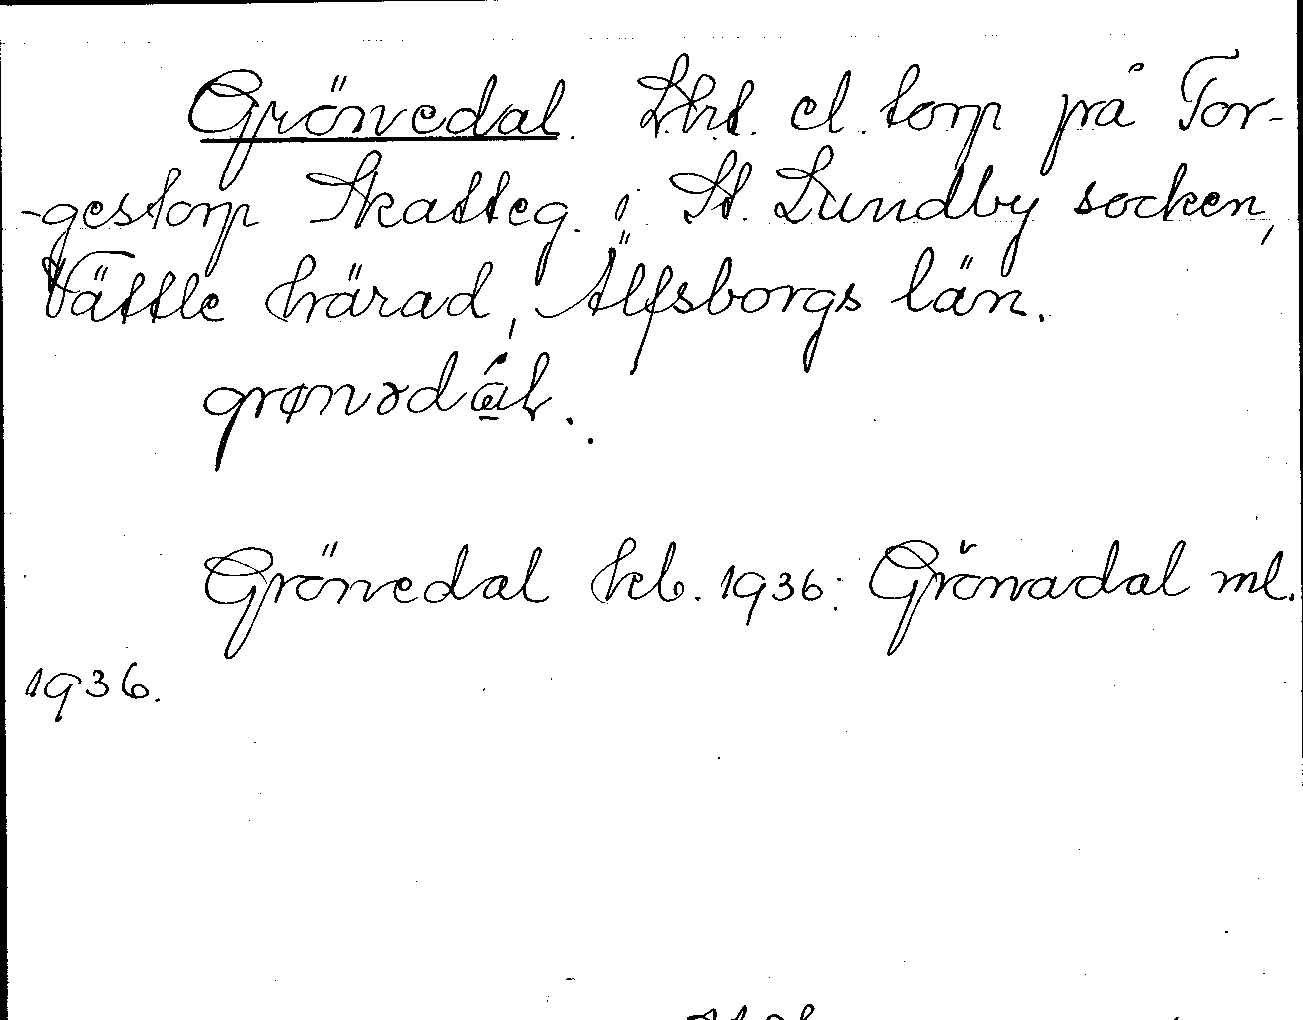 Grönedal. Lht. el. torp på Tor-
-gestorp Skatteg. i St. Lundby socken,
Vättle härad, Älfsborgs län.
grønədál.
Grönedal hcb. 1936: Grönadal ml.
1936.